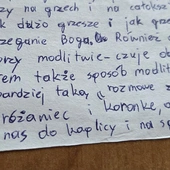 zy na grzech i na całoksz
k dużo grzeszę i jak grze
zeganie Boga. Również
orzy modlitwie- czuję o
em także sposób modlit
ardziej taką „ rozmowę z
różaniec i koronkę, o
nas do kaplicy i na s